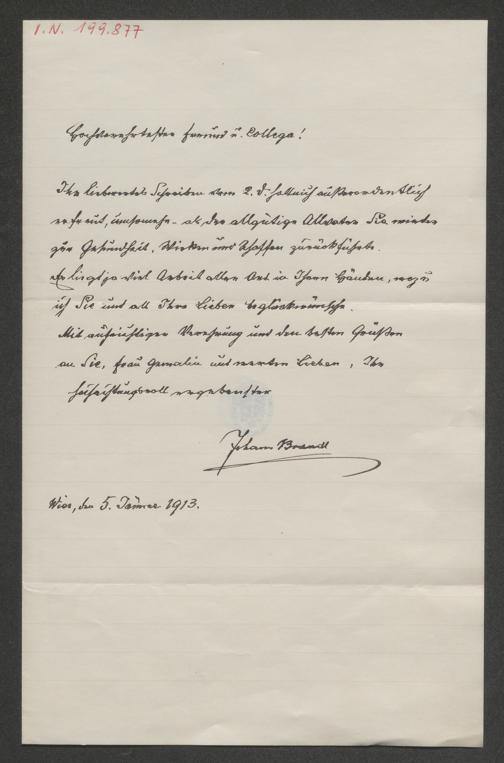 I.N. 199.877
Hochverehrtester Freund u. Collega!
Ihr liebwertes Schreiben vom 2. d. hat mich außerordentlich
erfreut, umsomehr als der allgütige Allvater Sie wieder
zur Gesundheit, Wirken und Schaffen zurückführte.
Es liegt ja viel Arbeit aller Art in Ihren Händen, wozu
ich Sie und all Ihre Lieben beglückwünsche.
Mit aufrichtiger Verehrung und den besten Grüßen
an Sie, Frau Gemalin und werten Lieben, Ihr
hochachtungsvoll ergebenster
Johann Brandl
Wien, den 5. Jänner 1913.